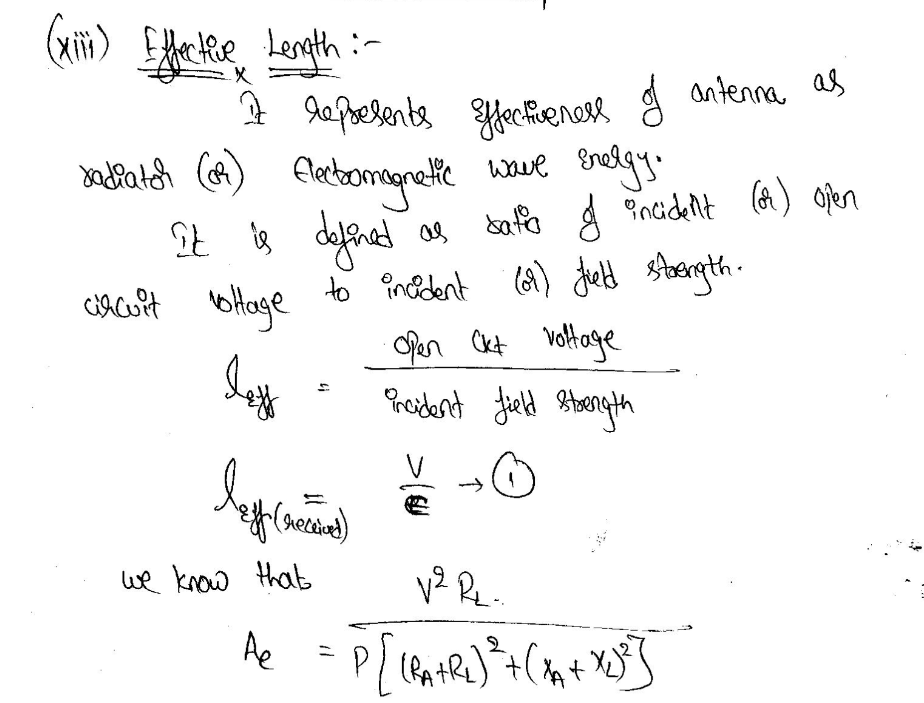 (xiii) Effective Length :-
It represents effectiveness of antenna as
radiator (or) Electromagnetic wave energy.
It is defined as ratio of incident (or) open
circuit voltage to incident (or) field strength.
l_eff = open ckt voltage / incident field strength
l_eff (received) = V / E → ①
we know that
A_e = V² R_L / P[(R_A+R_L)²+(X_A+X_L)²]